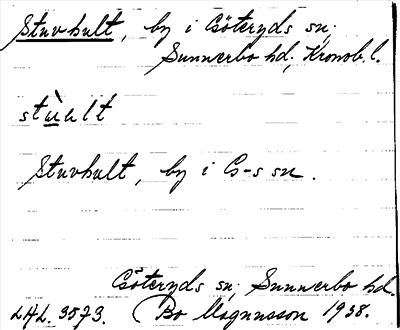 Stuvhult, by i Göteryds sn;
Sunnerbo hd; Kronob. l.
stùalt
Stuvhult, by i G-s sn.
Göteryds sn; Sunnerbo hd.
LAL. 3573. Bo Magnusson 1938.